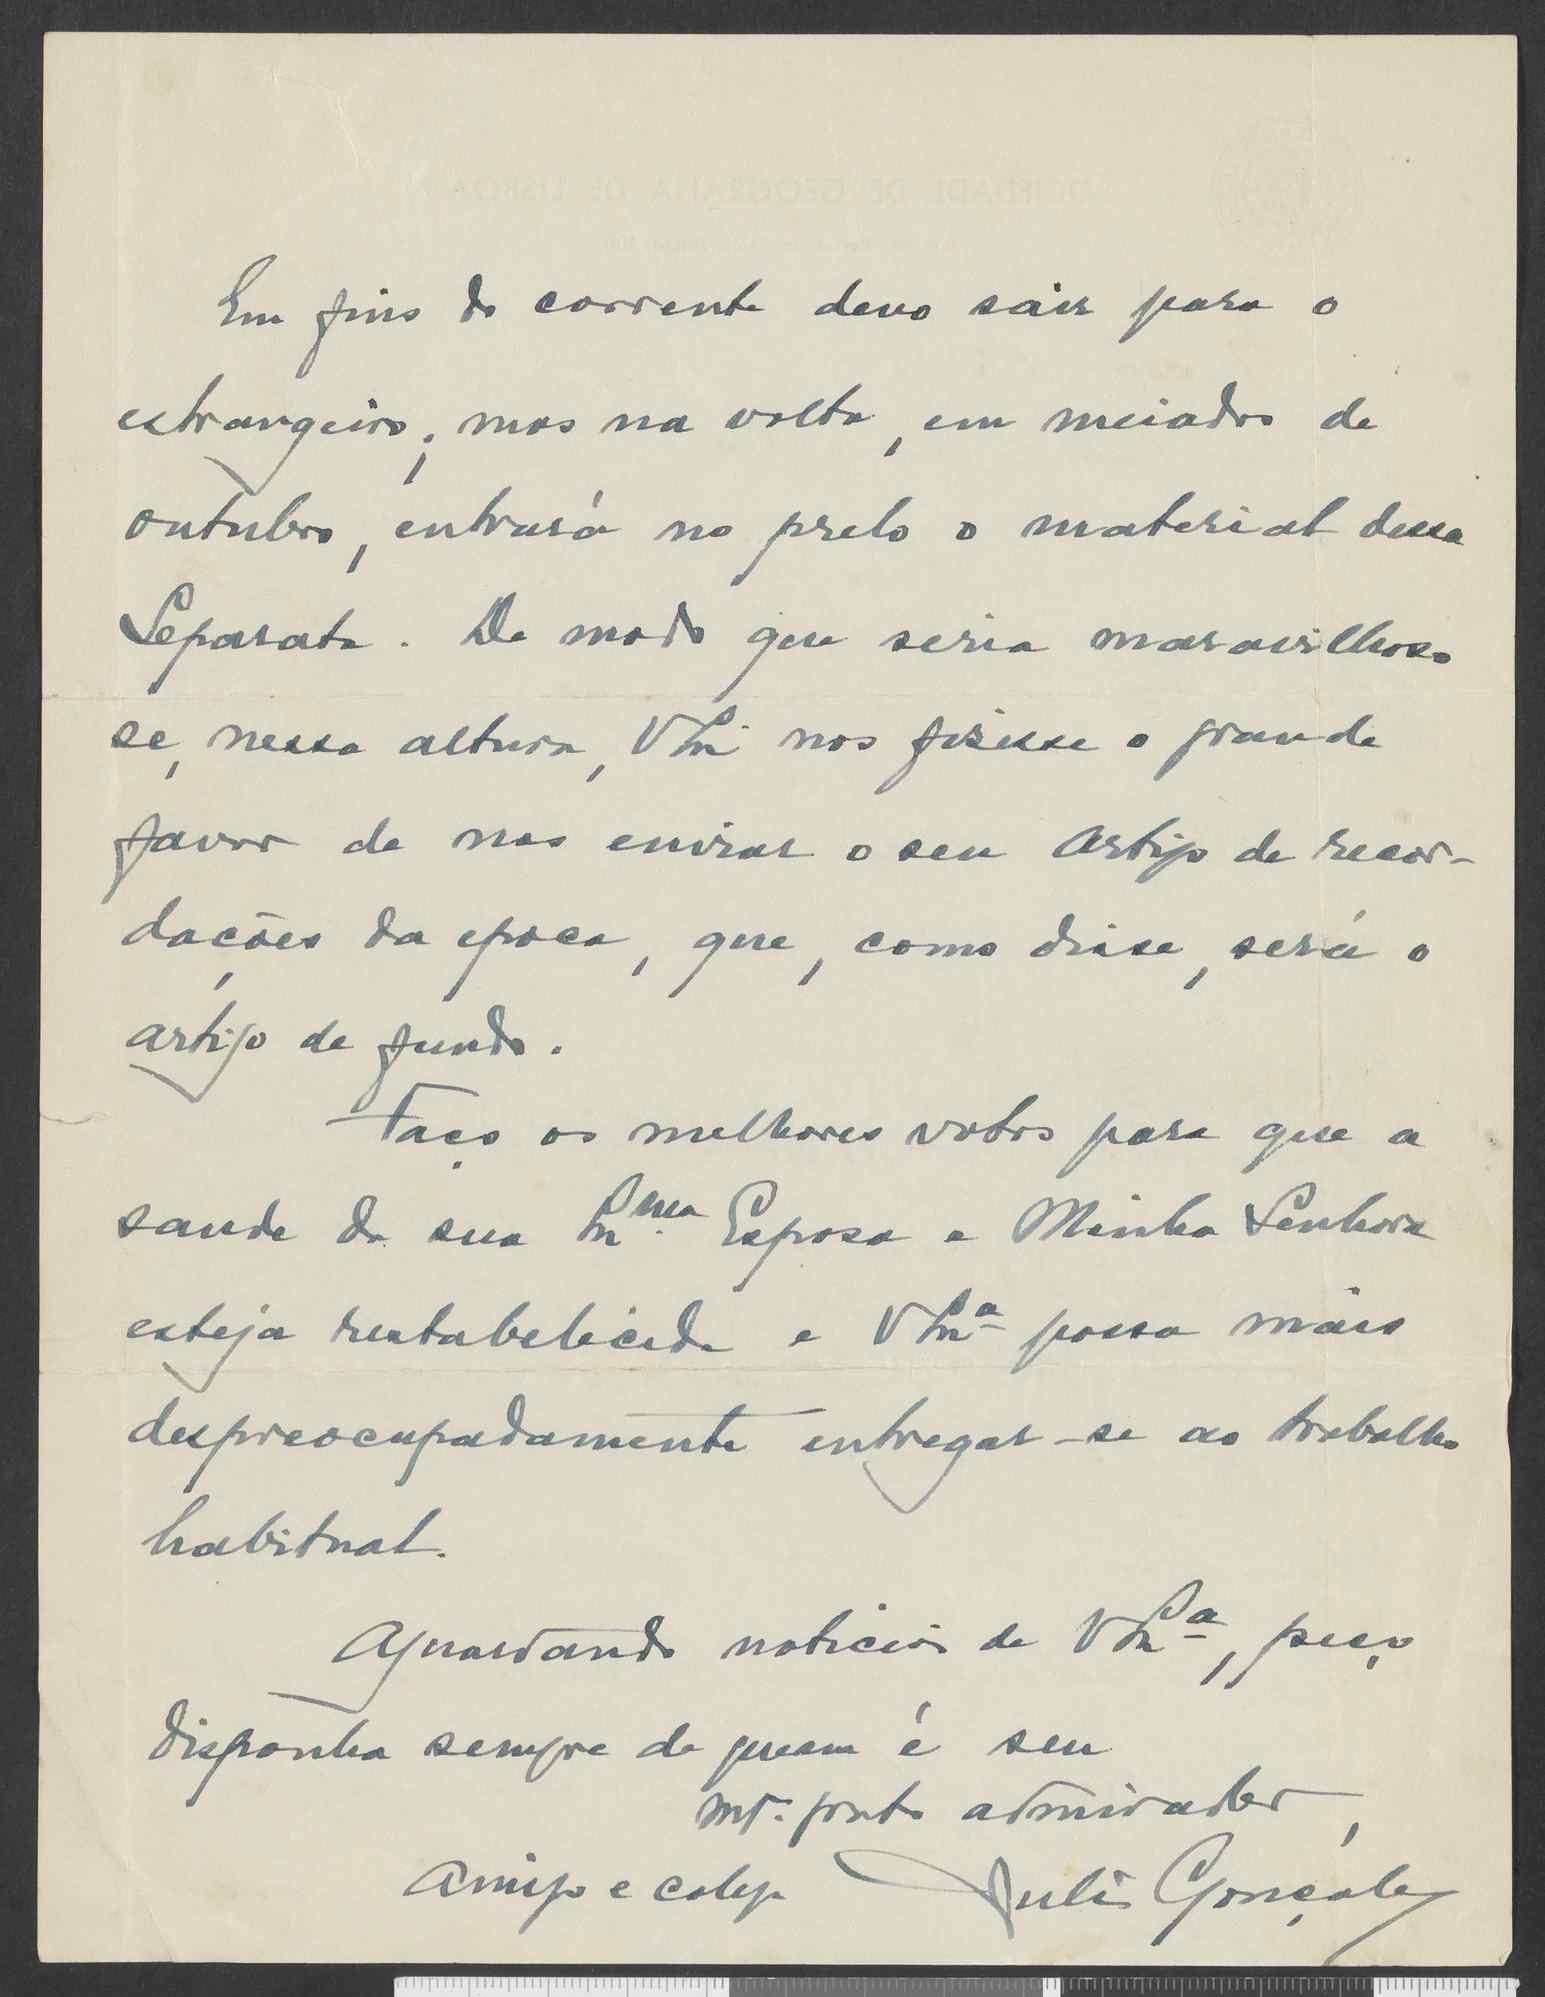 SOCIEDADE DE GEOGRAFIA DE LISBOA
Em fins do corrente devo sair para o
estrangeiro; mas na volta, em meiados de
outubro, entrará no prelo o material dessa
Separata. De modo que seria maravilhoso
se, nessa altura, V Ex. nos fizesse o grande
favor de nos enviar o seu artigo de recor-
dações da epoca, que, como disse, será o
artigo de fundo.
Faço os melhores votos para que a
saude de sua Ex.ma Esposa e Minha Senhora
esteja restabelecida e V Exª possa mais
despreocupadamente entregar-se ao trabalho
habitual.
Aguardando noticias de V Exª, peço
disponha sempre de quem é seu
mt. grato admirador,
amigo e colega Julio Gonçalves